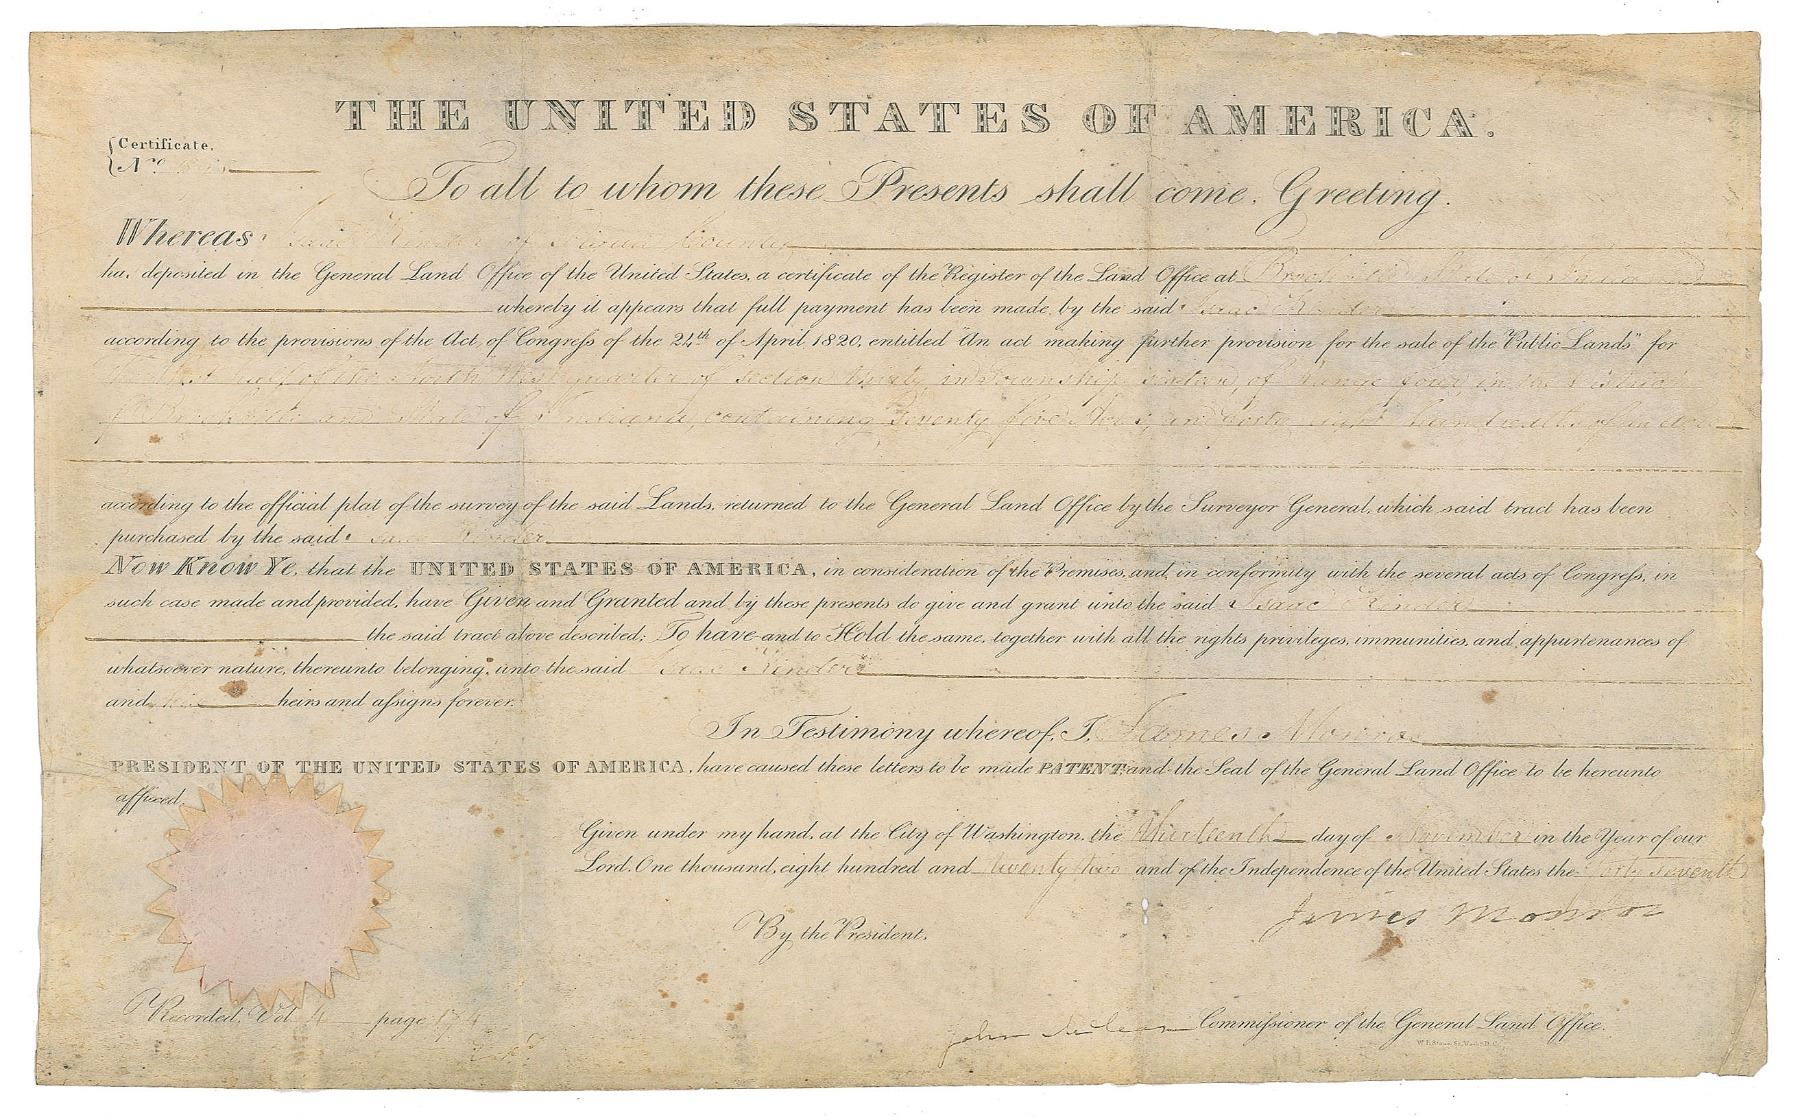 THE UNITED STATES OF AMERICA.
{Certificate.
{No.
To all to whom these Presents shall come, Greeting.
Whereas Isaac Kinder of County
ha. deposited in the General Land Office of the United States, a certificate of the Register of the Land Office at Brookville State of Indiana
whereby it appears that full payment has been made by the said Isaac Kinder
according to the provisions of the Act of Congreſs of the 24th of April 1820, entitled "An act making further provision for the sale of the Public Lands" for
the West half of the North West quarter of section thirty, in township sixteen, of Range four in the District
of Brookville and State of Indiana, containing Seventy five Acres, and forty eight hundredths of an acre
according to the official plat of the survey of the said Lands, returned to the General Land Office by the Surveyor General, which said tract has been
purchased by the said Isaac Kinder
Now Know Ye, that the UNITED STATES OF AMERICA, in consideration of the Premises, and in conformity with the several acts of Congreſs, in
such case made and provided, have Given and Granted and by these presents do give and grant unto the said Isaac Kinder
the said tract above described: To have and to Hold the same, together with all the rights privileges, immunities, and appurtenances of
whatsoever nature, thereunto belonging, unto the said Isaac Kinder
and his heirs and aſsigns forever.
In Testimony whereof, I, James Monroe
PRESIDENT OF THE UNITED STATES OF AMERICA, have caused these letters to be made PATENT and the Seal of the General Land Office to be hereunto
affixed.
Given under my hand, at the City of Washington, the thirteenth day of November in the Year of our
Lord, One thousand, eight hundred and twenty two and of the Independence of the United States the forty seventh
James Monroe
By the President,
Recorded, Vol. 4 page 174
John McLean Commiſsioner of the General Land Office.